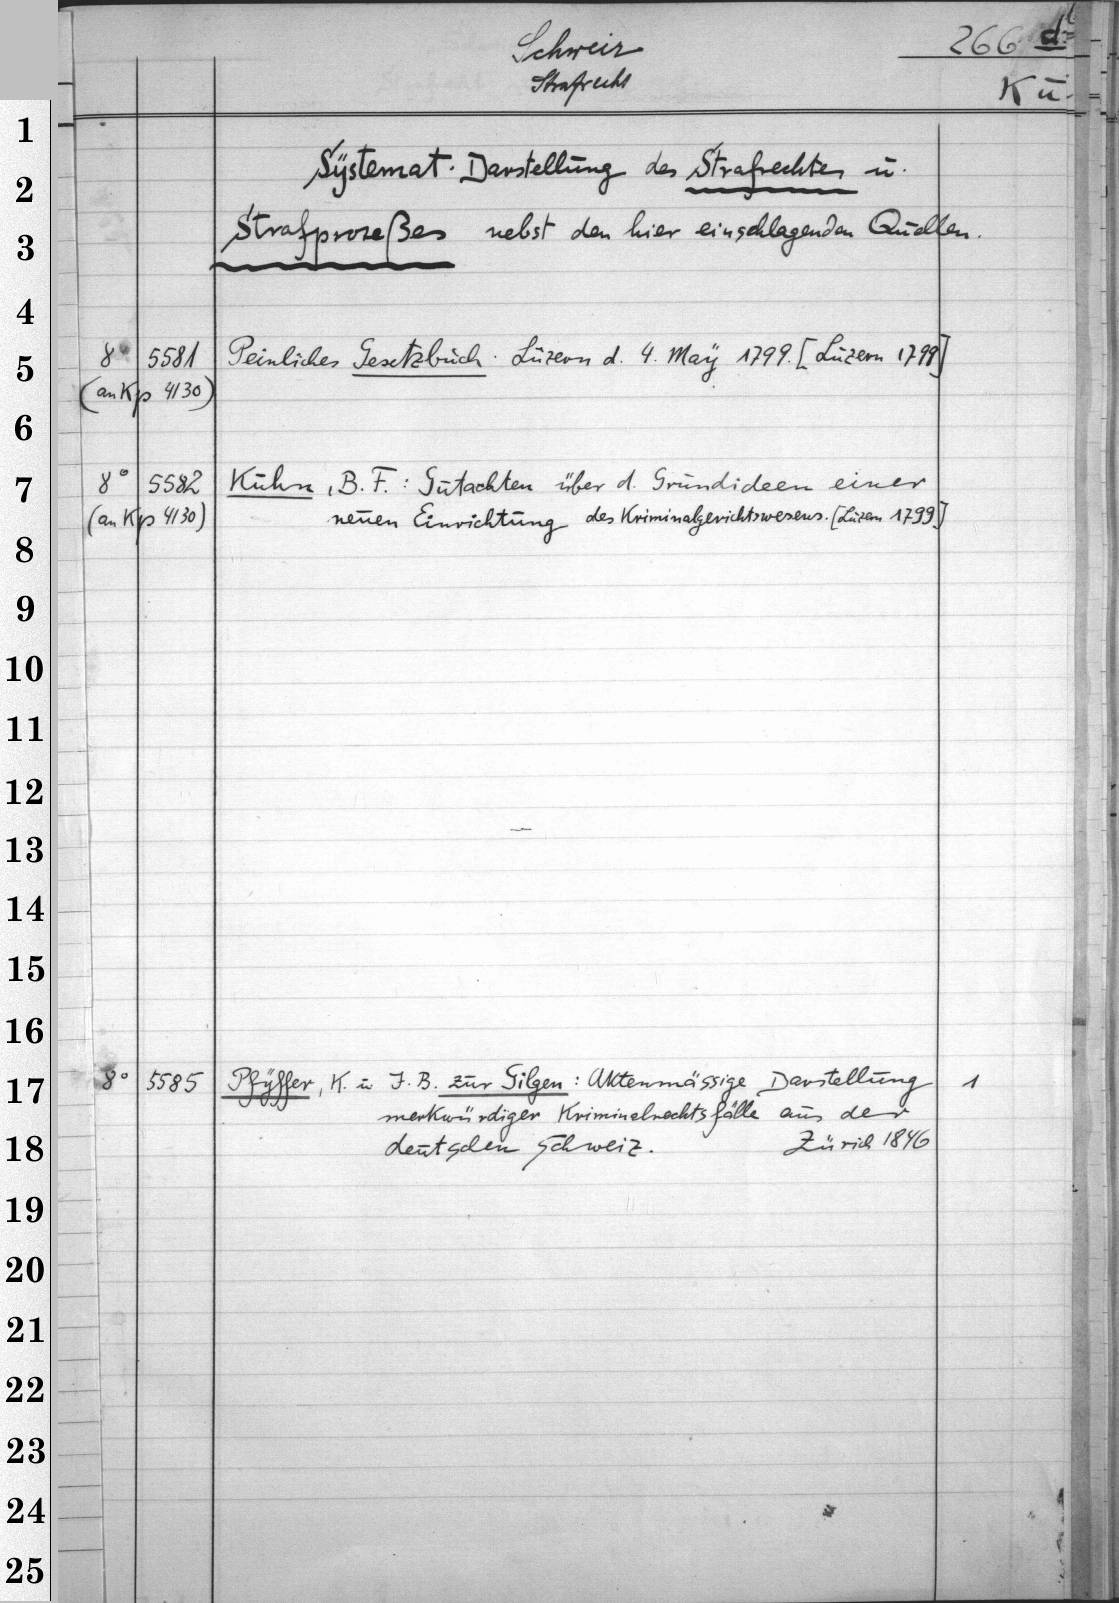 Schweiz
Strafrecht
266 d
Kü.
Systemat. Darstellung des Strafrechtes u.
Strafprozeßes nebst den hier einschlagenden Quellen.
8° 5581 Peinliches Gesetzbuch. Luzern d. 4. May 1799. [Luzern 1799]
(an Kps 4130)
8° 5582 Kuhn, B. F.: Gutachten über d. Grundideen einer
(an Kps 4130) neuen Einrichtung des Kriminalgerichtswesens. [Luzern 1799]
8° 5585 Pfyffer, K. u J. B. zur Gilgen: Aktenmässige Darstellung 1
merkwürdiger Kriminalrechtsfälle aus der
deutschen Schweiz. Zürich 1846
1
2
3
4
5
6
7
8
9
10
11
12
13
14
15
16
17
18
19
20
21
22
23
24
25